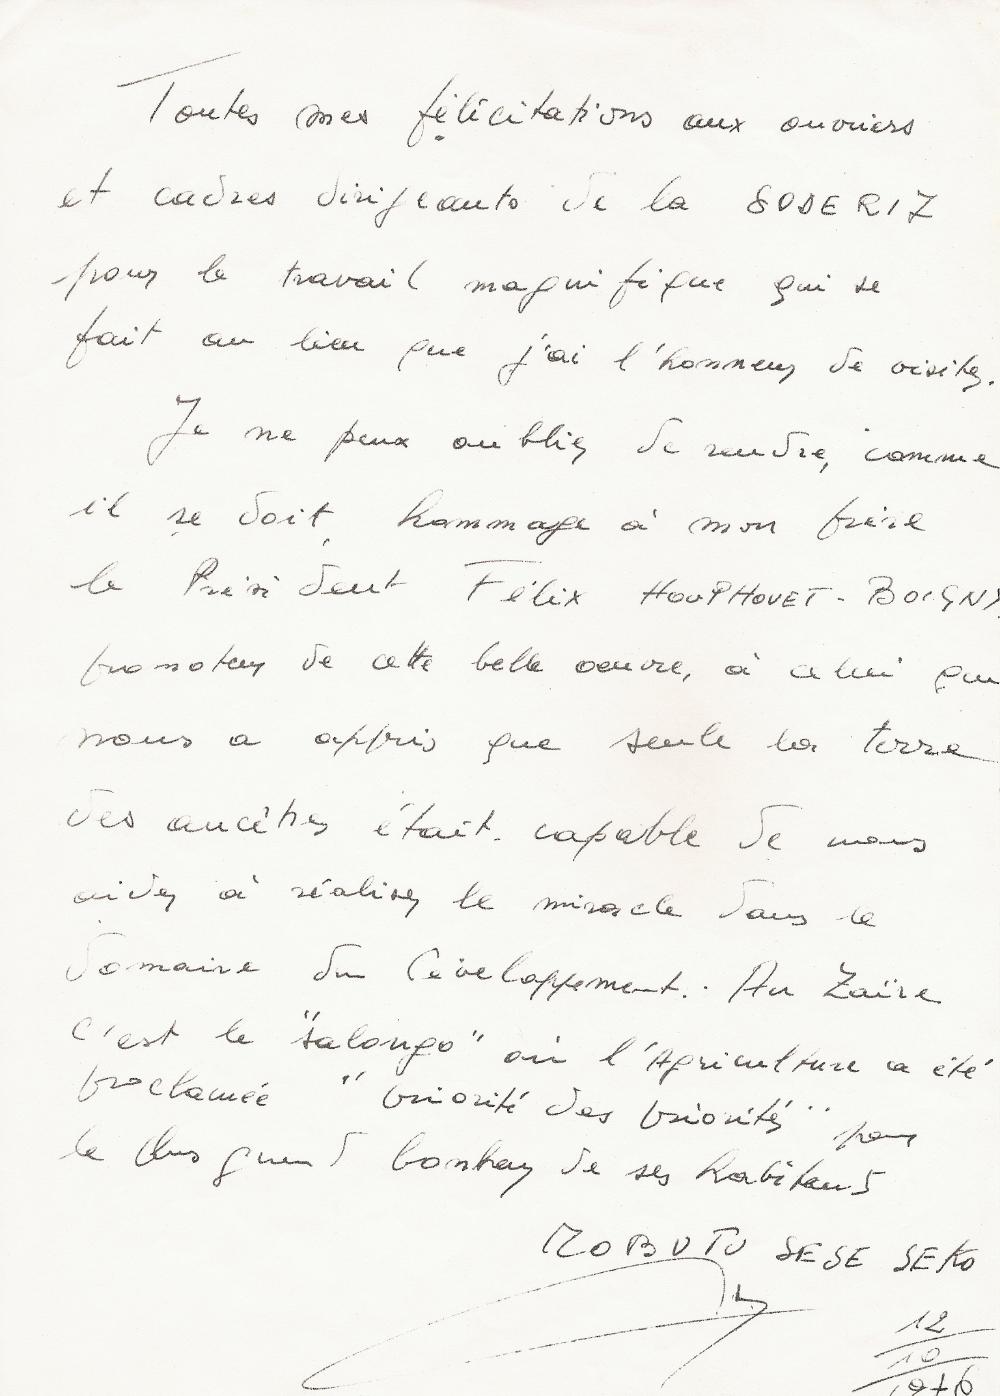 Toutes mes félicitations aux ouvriers
et cadres dirigeants de la SODERIZ
pour le travail magnifique qui se
fait au lieu que j'ai l'honneur de visiter.
Je ne peux oublier de rendre, comme
il se doit, hommage à mon frère
le Président Félix HOUPHOUET-BOIGNY
promoteur de cette belle oeuvre, à celui qui
nous a appris que seule la terre
des ancêtres était capable de nous
aider à réaliser le miracle dans le
domaine du développement. Au Zaïre
c'est le "salongo" où l'Agriculture a été
proclamée "priorité des priorités" pour
le plus grand bonheur de ses habitants
MOBUTU SESE SEKO
12
10
1976